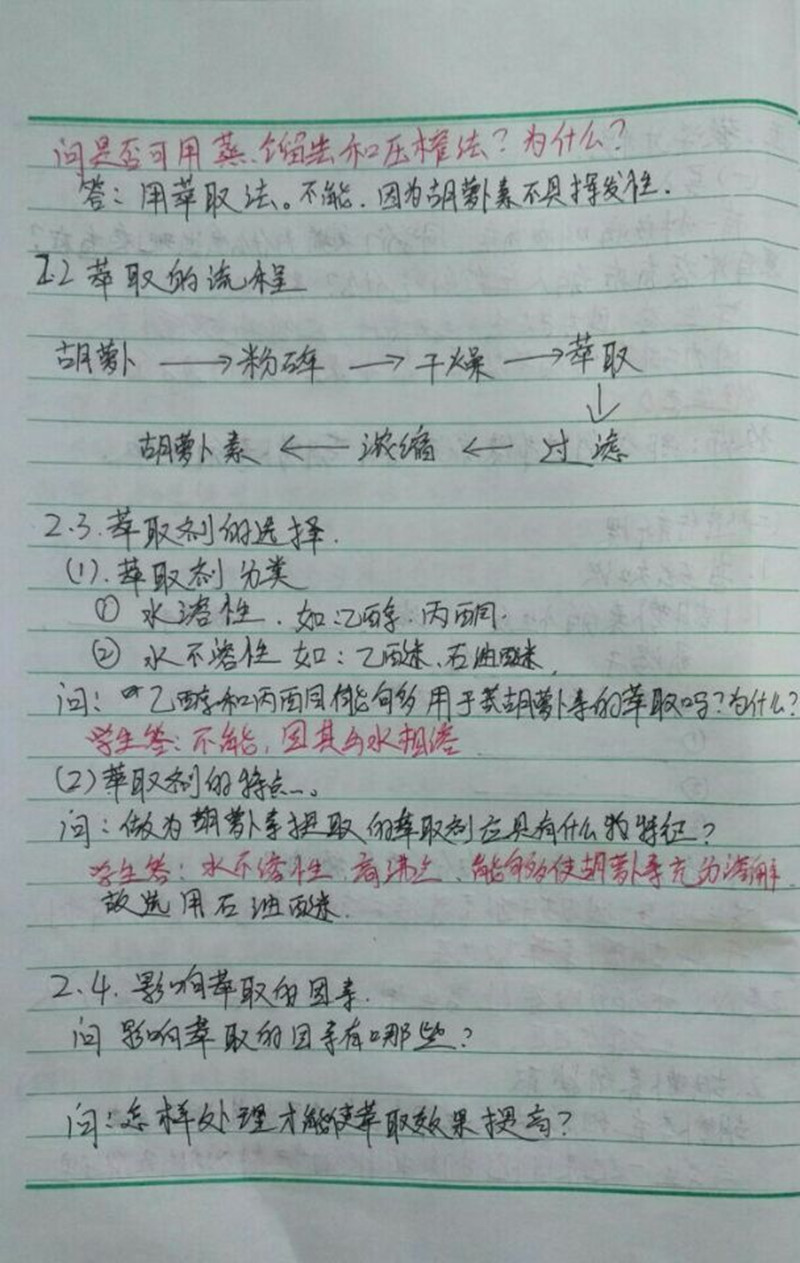 问是否可用蒸馏法和压榨法?为什么?
答:用萃取法。不能.因为胡萝卜素不具挥发性.
2.2 萃取的流程
胡萝卜 → 粉碎 → 干燥 → 萃取
↓
胡萝卜素 ← 浓缩 ← 过滤
2.3.萃取剂的选择.
(1).萃取剂分类
① 水溶性.如:乙醇.丙酮.
② 水不溶性 如:乙醚、石油醚.
问:乙醇和丙酮能够用于胡萝卜素的萃取吗?为什么?
学生答:不能,因其与水相溶
(2)萃取剂的特点.
问:做为胡萝卜素提取的萃取剂应具有什么特征?
学生答:水不溶性.高沸点.能够使胡萝卜素充分溶解.
故选用石油醚.
2.4.影响萃取的因素.
问 影响萃取的因素有哪些?
问:怎样处理才能使萃取效果提高?